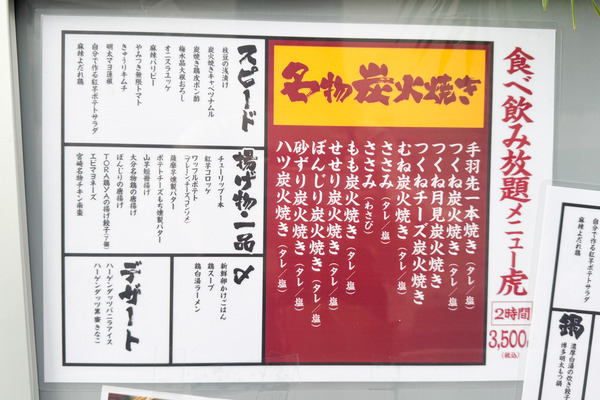 食べ飲み放題メニュー虎
2時間
3,500
(税込)
名物炭火焼き
手羽先一本焼き(タレ/塩)
つくね炭火焼き(タレ/塩)
つくね月見炭火焼き
つくねチーズ炭火焼き
むね炭火焼き(タレ/塩)
ささみ(タレ/塩)
ささみ(わさび)
もも炭火焼き(タレ/塩)
せせり炭火焼き(タレ/塩)
ぼんじり炭火焼き(タレ/塩)
砂ずり炭火焼き(タレ/塩)
ハツ炭火焼き(タレ/塩)
スピード
枝豆の浅漬け
炭火焼きキャベツナムル
炭焼き鶏皮ポン酢
梅水晶大根おろし
オニスラエッケ
麻辣パリピー
やみつき無限トマト
きゅうりキムチ
明太マヨ蓮根
自分で作る紅芋ポテトサラダ
麻辣よだれ鶏
揚げ物・一品
チューリップ一本
紅芋コロッケ
ワッフルポテト
(プレーン/チーズ/コンソメ)
薩摩芋燻製バター
ポテトチーズもち燻製バター
山芋短冊揚げ
大分名物鶏の唐揚げ
ぼんじりの唐揚げ
TORA鶏YAの揚げ餃子(7個)
エビマヨネーズ
宮崎名物チキン南蛮
〆
新鮮卵かけごはん
鶏スープ
鶏白湯ラーメン
デザート
ハーゲンダッツバニラアイス
ハーゲンダッツ黒蜜きなこ
自分で作る紅芋ポテトサラダ
麻辣よだれ鶏
鍋
濃厚白湯の炊き餃子
博多明太もつ鍋